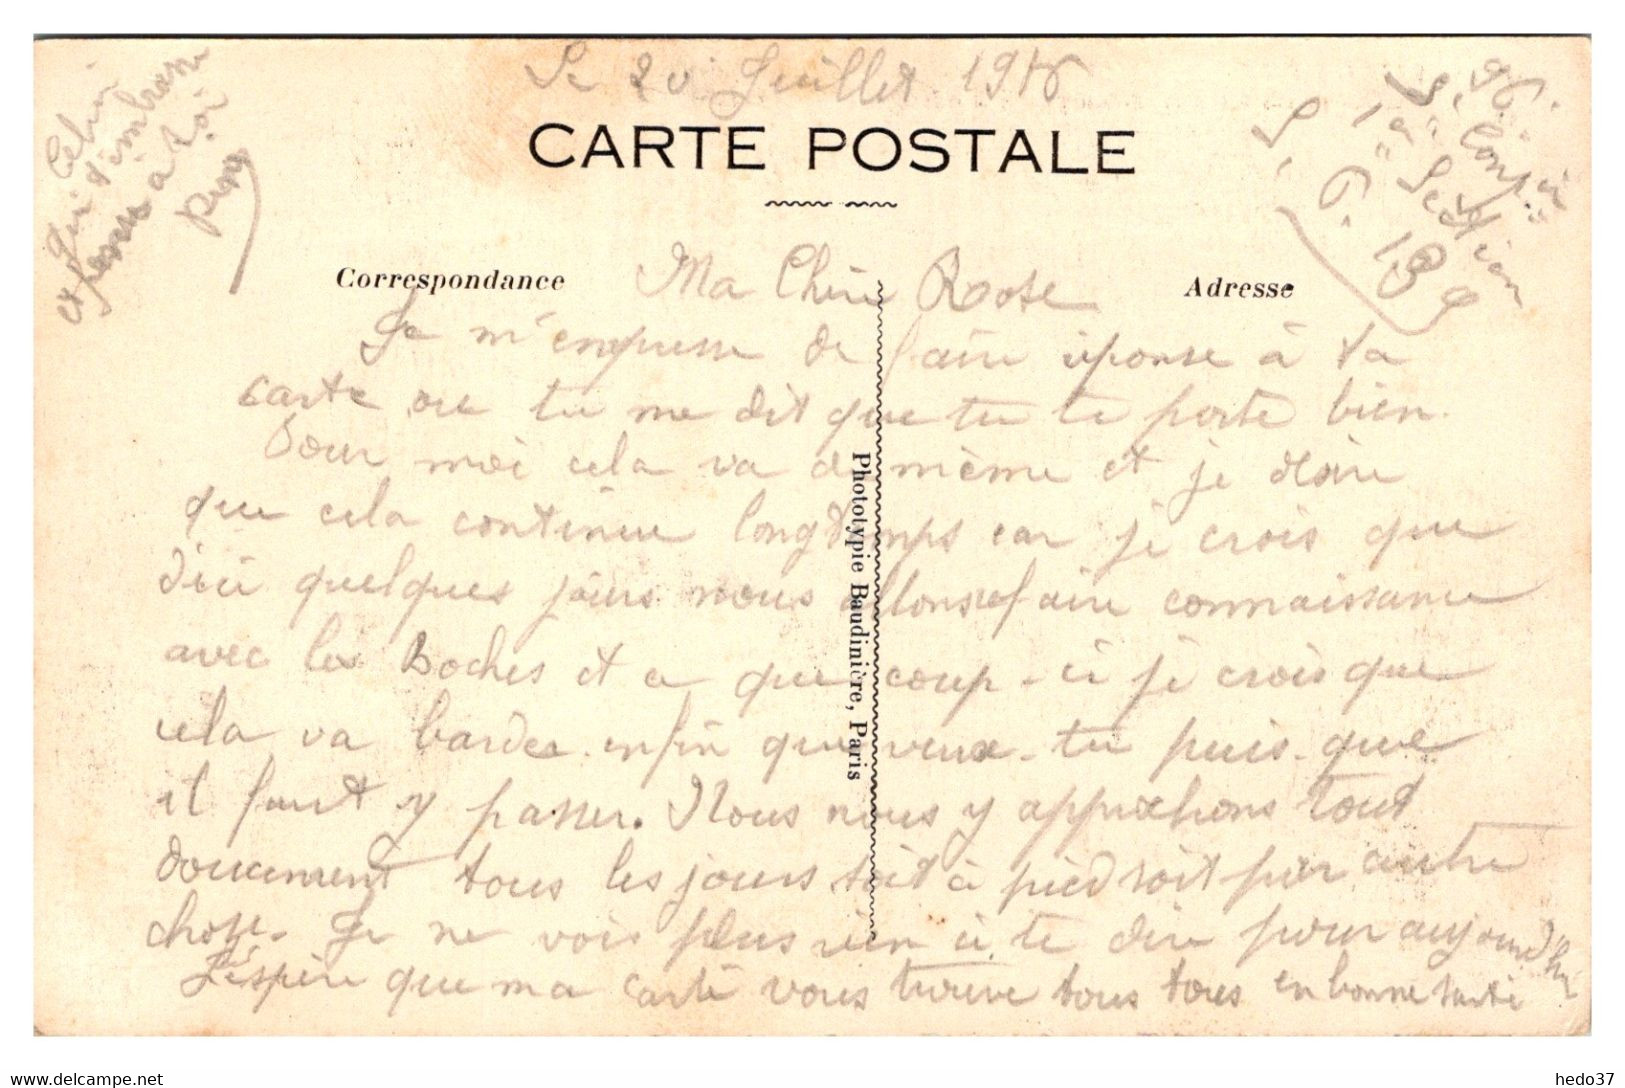 Le 20 Juillet 1916
CARTE POSTALE
Correspondance
Adresse
Ma Chère Rose
Je m'empresse de faire réponse à ta
carte ou tu me dit que tu te porte bien.
Pour moi cela va de même et je désire
que cela continue longtemps car je crois que
d'ici quelques jours nous allons refaire connaissance
avec les Boches et ce que coup-ci je crois que
cela va barder enfin que veux-tu puis-que
il faut y passer. Nous nous y approchons tout
doucement tous les jours soit à pied soit par autre
chose. Je ne vois plus rien à te dire pour aujourd'hui
J'éspère que ma carte vous trouve tous tous en bonne santé
Celui
qui t'embrasse
et pense à toi
Phototypie Baudinière, Paris
1ère Section
S. P. 139
www.delcampe.net
hedo37